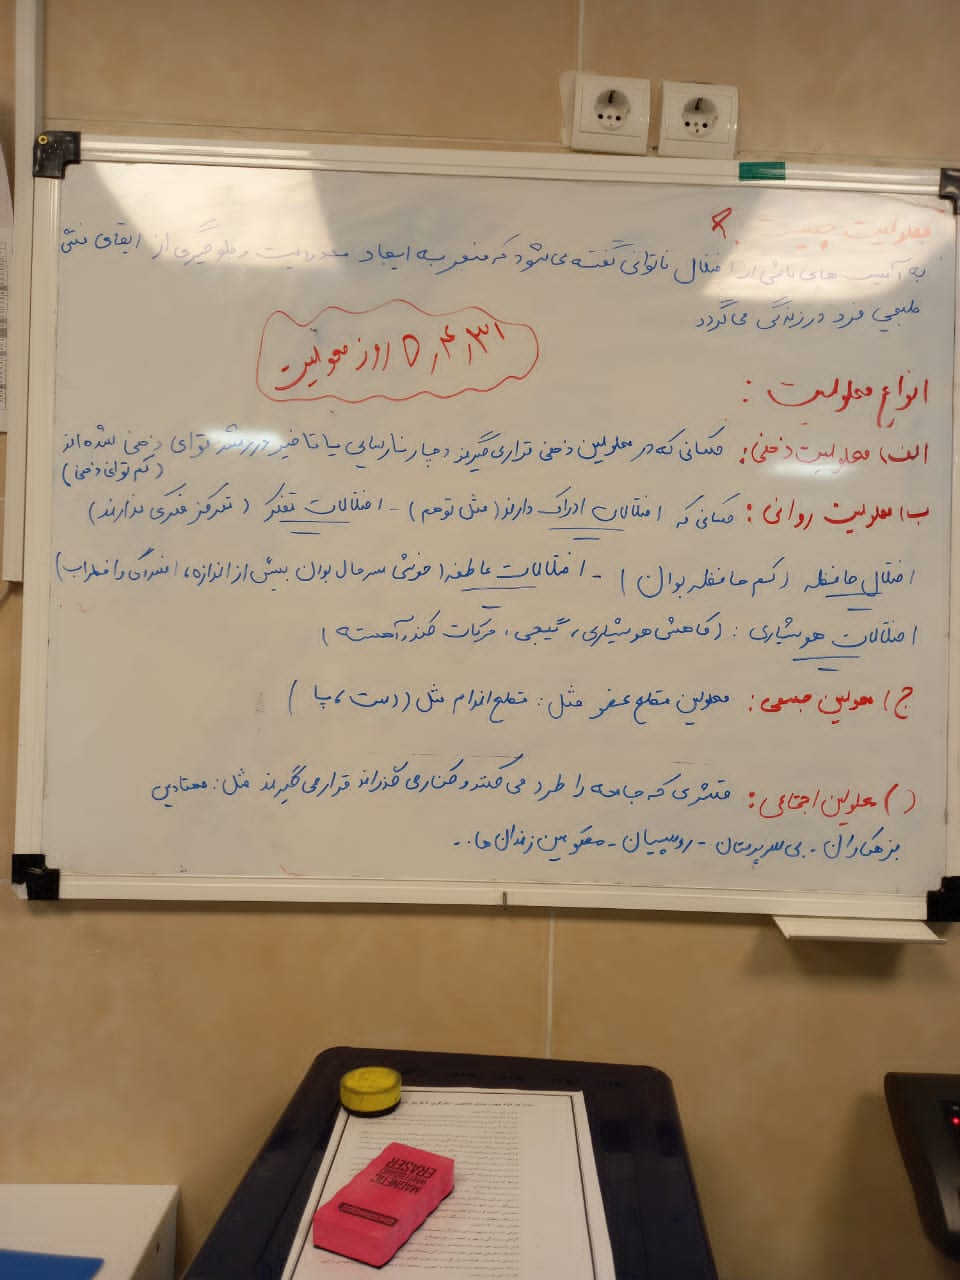 معلولیت چیست ؟
به آسیب های ناشی از اختلال ناتوانی گفته می شود که منجر به ایجاد محدودیت و جلوگیری از ایفای نقش
طبیعی فرد در زندگی می گردد
۳۱ر۴ر۵ روز معلولیت
انواع معلولیت :
الف) معلولیت ذهنی: کسانی که در معلولین ذهنی قرار می گیرند دچار نارسایی یا تاخیر در رشد توای ذهنی شده اند
(کم توای ذهنی)
ب) معلولیت روانی : کسانی که اختلالات ادراک دارند (مثل توهم) - اختلالات تفکر ( تمرکز فکری ندارند)
اختلال حافظه (کم حافظه بودن) - اختلالات عاطفه (خوشی سرحال بودن بیش از اندازه، افسردگی و اضطراب)
اختلالات هوشیاری : (کاهش هوشیاری، گیجی، حرکات کند و آهسته)
ج) معلولین جسمی : معلولین قطع عضو مثل : قطع اندام مثل (دست، پا)
د) معلولین اجتماعی : قشری که جامعه را طرد می کنند و کناری می گذراند قرار می گیرند مثل : معتادین
بزهکاران - بی سرپرستان - روسپیان - محکومین زندان ها..
MAGNETIC
WHITEBOARD
ERASER